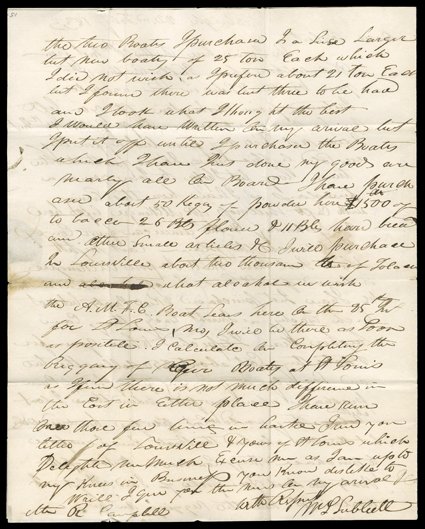 the two Boats I purchase Is a Size Larger
but new boats of 25 ton Each which
I did not wish as I prefer about 21 ton Each
but I found there was but three to be had
and I took what I thought the best
I would have written on my arrival but
I put it off until I purchase the Boats
which I have this done my goods are
nearly all On Board I have purch
ase about 50 Kegs of powder here 1500 of
to bacco 26 Bbls flour & 11 Bbls
and other Small articles & I will purchase
In Louisville about two thousand of Tobaco
and what alcohol we wish
the A. M. F. C. Boat Lears here On the 25th
for St Louis I will be there as Soon
as possible. I calculate On Completing the
Riggang of Boats at St Louis
as I find there is not much difference in
the Cost in Either place I have
these few lines in haste I
letter of Louisville & yours of St Louis which
Delights Me Much Excuse me as I am up to
my in Business you Know dislike to
Write I give you the on my arrival
Mr R Campbell with Respect
Wm L Sublett